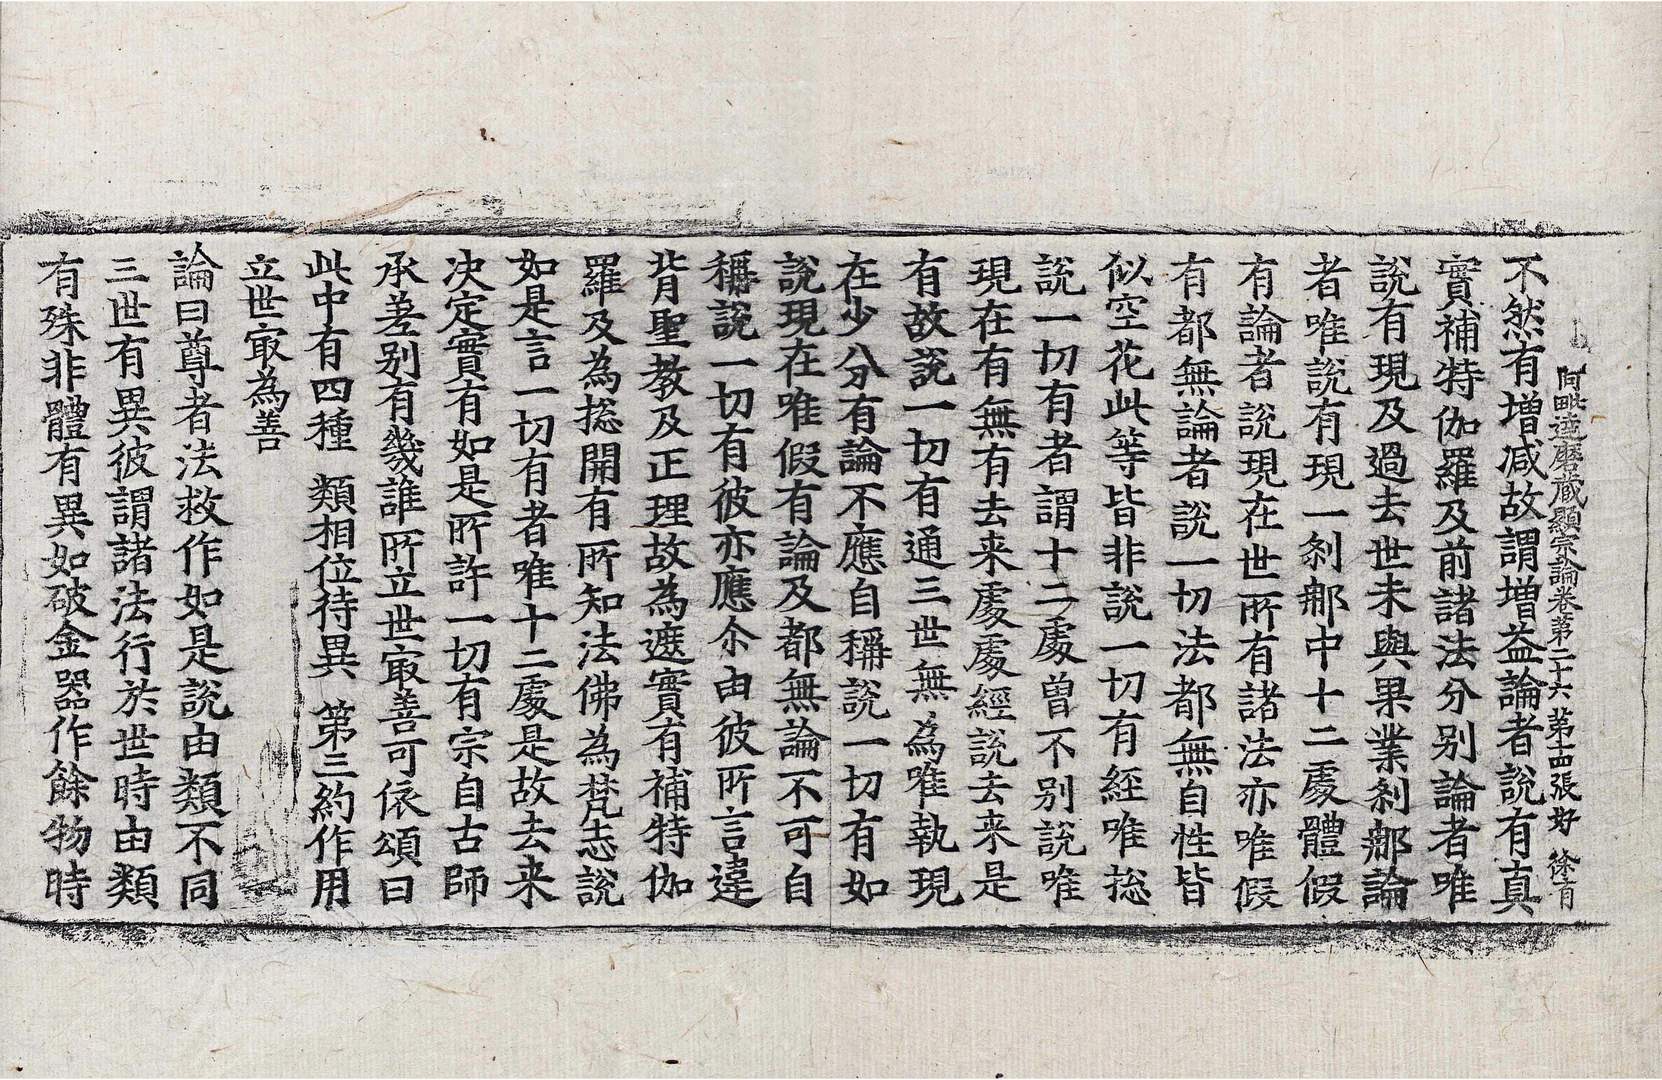 阿毗達磨蔵顯宗論卷第二十六 第十四張 好 徐有
不然有增減故謂增益論者說有真
實補特伽羅及前諸法分别論者唯
說有現及過去世未與果業刹𨚗論
者唯說有現一刹𨚗中十二處體假
有論者說現在世所有諸法亦唯假
有都無論者說一切法都無自性皆
似空花此等皆非說一切有經唯捴
說一切有者謂十二處曾不別說唯
現在有無有去来處處經說去来是
有故說一切有通三世無為唯執現
在少分有論不應自稱說一切有如
說現在唯假有論及都無論不可自
稱說一切有彼亦應尒由彼所言違
背聖教及正理故為遮實有補特伽
羅及為捴開有所知法佛為梵志說
如是言一切有者唯十二處是故去来
决定實有如是所許一切有宗自古師
承差别有幾誰所立世㝡善可依頌曰
此中有四種 類相位待異 第三約作用
立世㝡為善
論曰尊者法救作如是說由類不同
三世有異彼謂諸法行於世時由類
有殊非體有異如破金器作餘物時